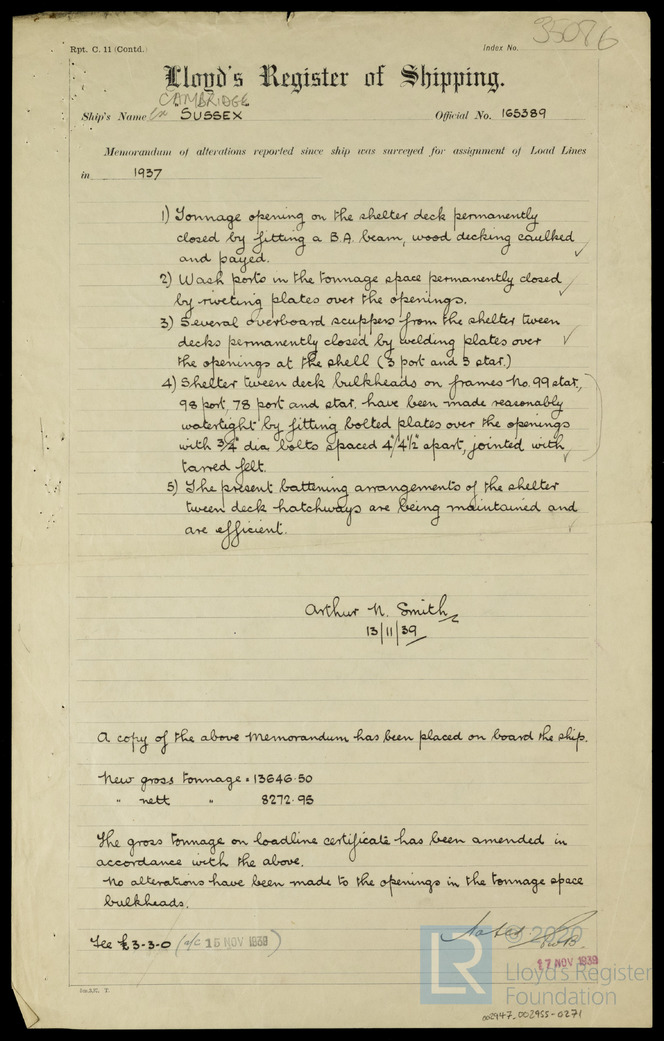 Rpt. C. 11 (Contd.)
Index No. 35086
Lloyd's Register of Shipping.
CAMBRIDGE
Ship's Name ex SUSSEX Official No. 165389
Memorandum of alterations reported since ship was surveyed for assignment of Load Lines
in 1937
1) Tonnage opening on the shelter deck permanently
closed by fitting a B.A. beam, wood decking caulked
and payed.
2) Wash ports in the tonnage space permanently closed
by riveting plates over the openings.
3) Several overboard scuppers from the shelter tween
decks permanently closed by welding plates over
the openings at the shell (3 port and 3 star.)
4) Shelter tween deck bulkheads on frames No. 99 star.,
98 port, 78 port and star. have been made reasonably
watertight by fitting bolted plates over the openings
with 3/4" dia. bolts spaced 4"/4½" apart, jointed with
tarred felt.
5) The present battening arrangements of the shelter
tween deck hatchways are being maintained and
are efficient.
Arthur N. Smith
13/11/39
A copy of the above Memorandum has been placed on board the ship.
New gross tonnage = 13646.50
" nett " 8272.95
The gross tonnage on loadline certificate has been amended in
accordance with the above.
No alterations have been made to the openings in the tonnage space
bulkheads.
Fee £3-3-0 (a/c 15 NOV 1939)
Noted
17 NOV 1939
LR © 2020
Lloyd's Register
Foundation
002947-002955-0271